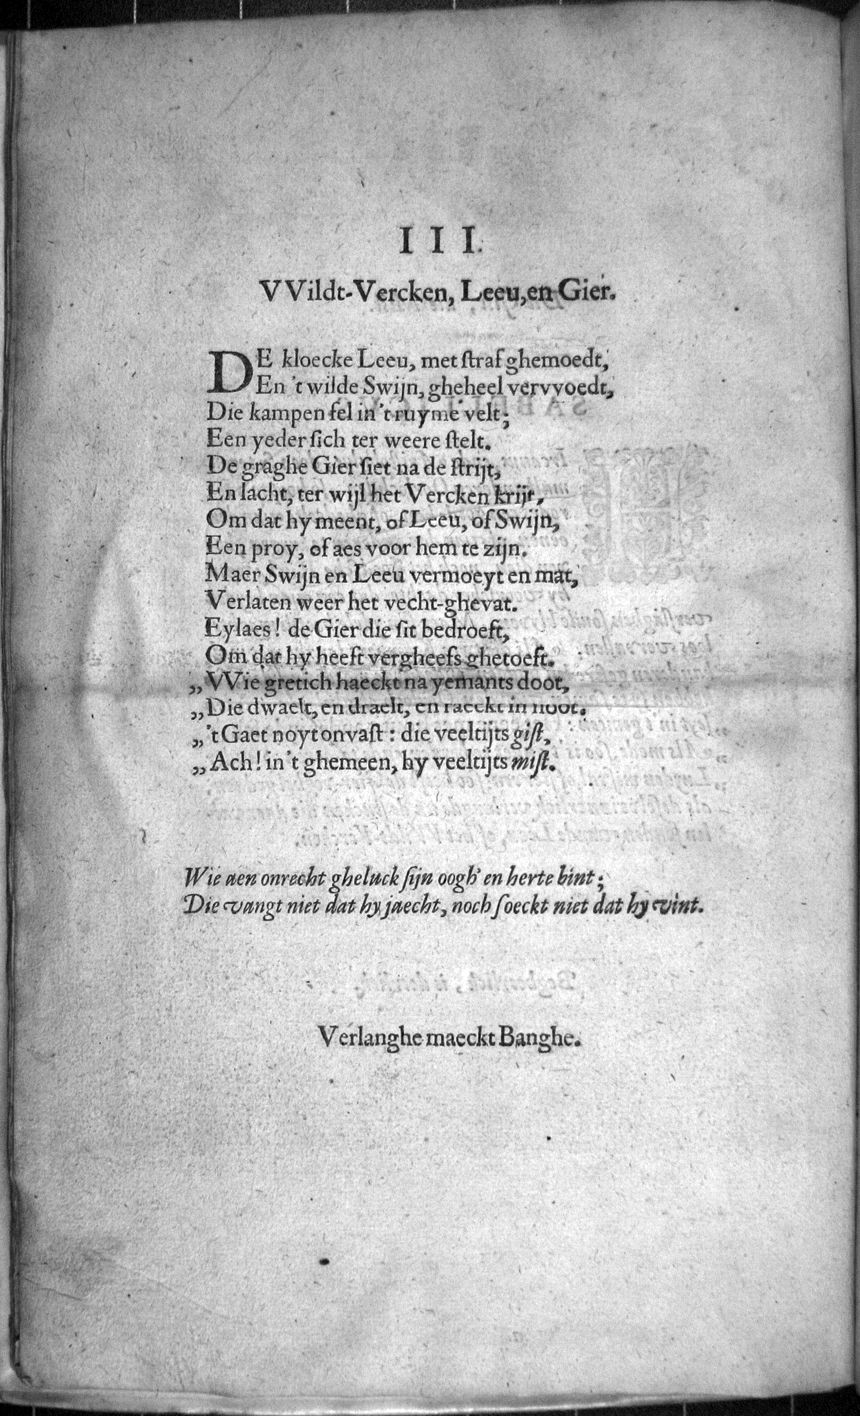 III.
VVildt-Vercken, Leeu, en Gier.
DE kloecke Leeu, met straf ghemoedt,
En 't wilde Swijn, gheheel vervvoedt,
Die kampen fel in 't ruyme velt;
Een yeder sich ter weere stelt.
De graghe Gier siet na de strijt,
En lacht, ter wijl het Vercken krijt,
Om dat hy meent, of Leeu, of Swijn,
Een proy, of aes voor hem te zijn.
Maer Swijn en Leeu vermoeyt en mat,
Verlaten weer het vecht-ghevat.
Eylaes! de Gier die sit bedroeft,
Om dat hy heeft vergheefs ghetoeft.
„VVie gretich haeckt na yemants doot,
„Die dwaelt, en draelt, en raeckt in noot.
„'t Gaet noyt onvast: die veeltijts gist,
„Ach! in 't ghemeen, hy veeltijts mist.
Wie aen onrecht gheluck sijn oogh' en herte bint;
Die vangt niet dat hy jaecht, noch soeckt niet dat hy vint.
Verlanghe maeckt Banghe.